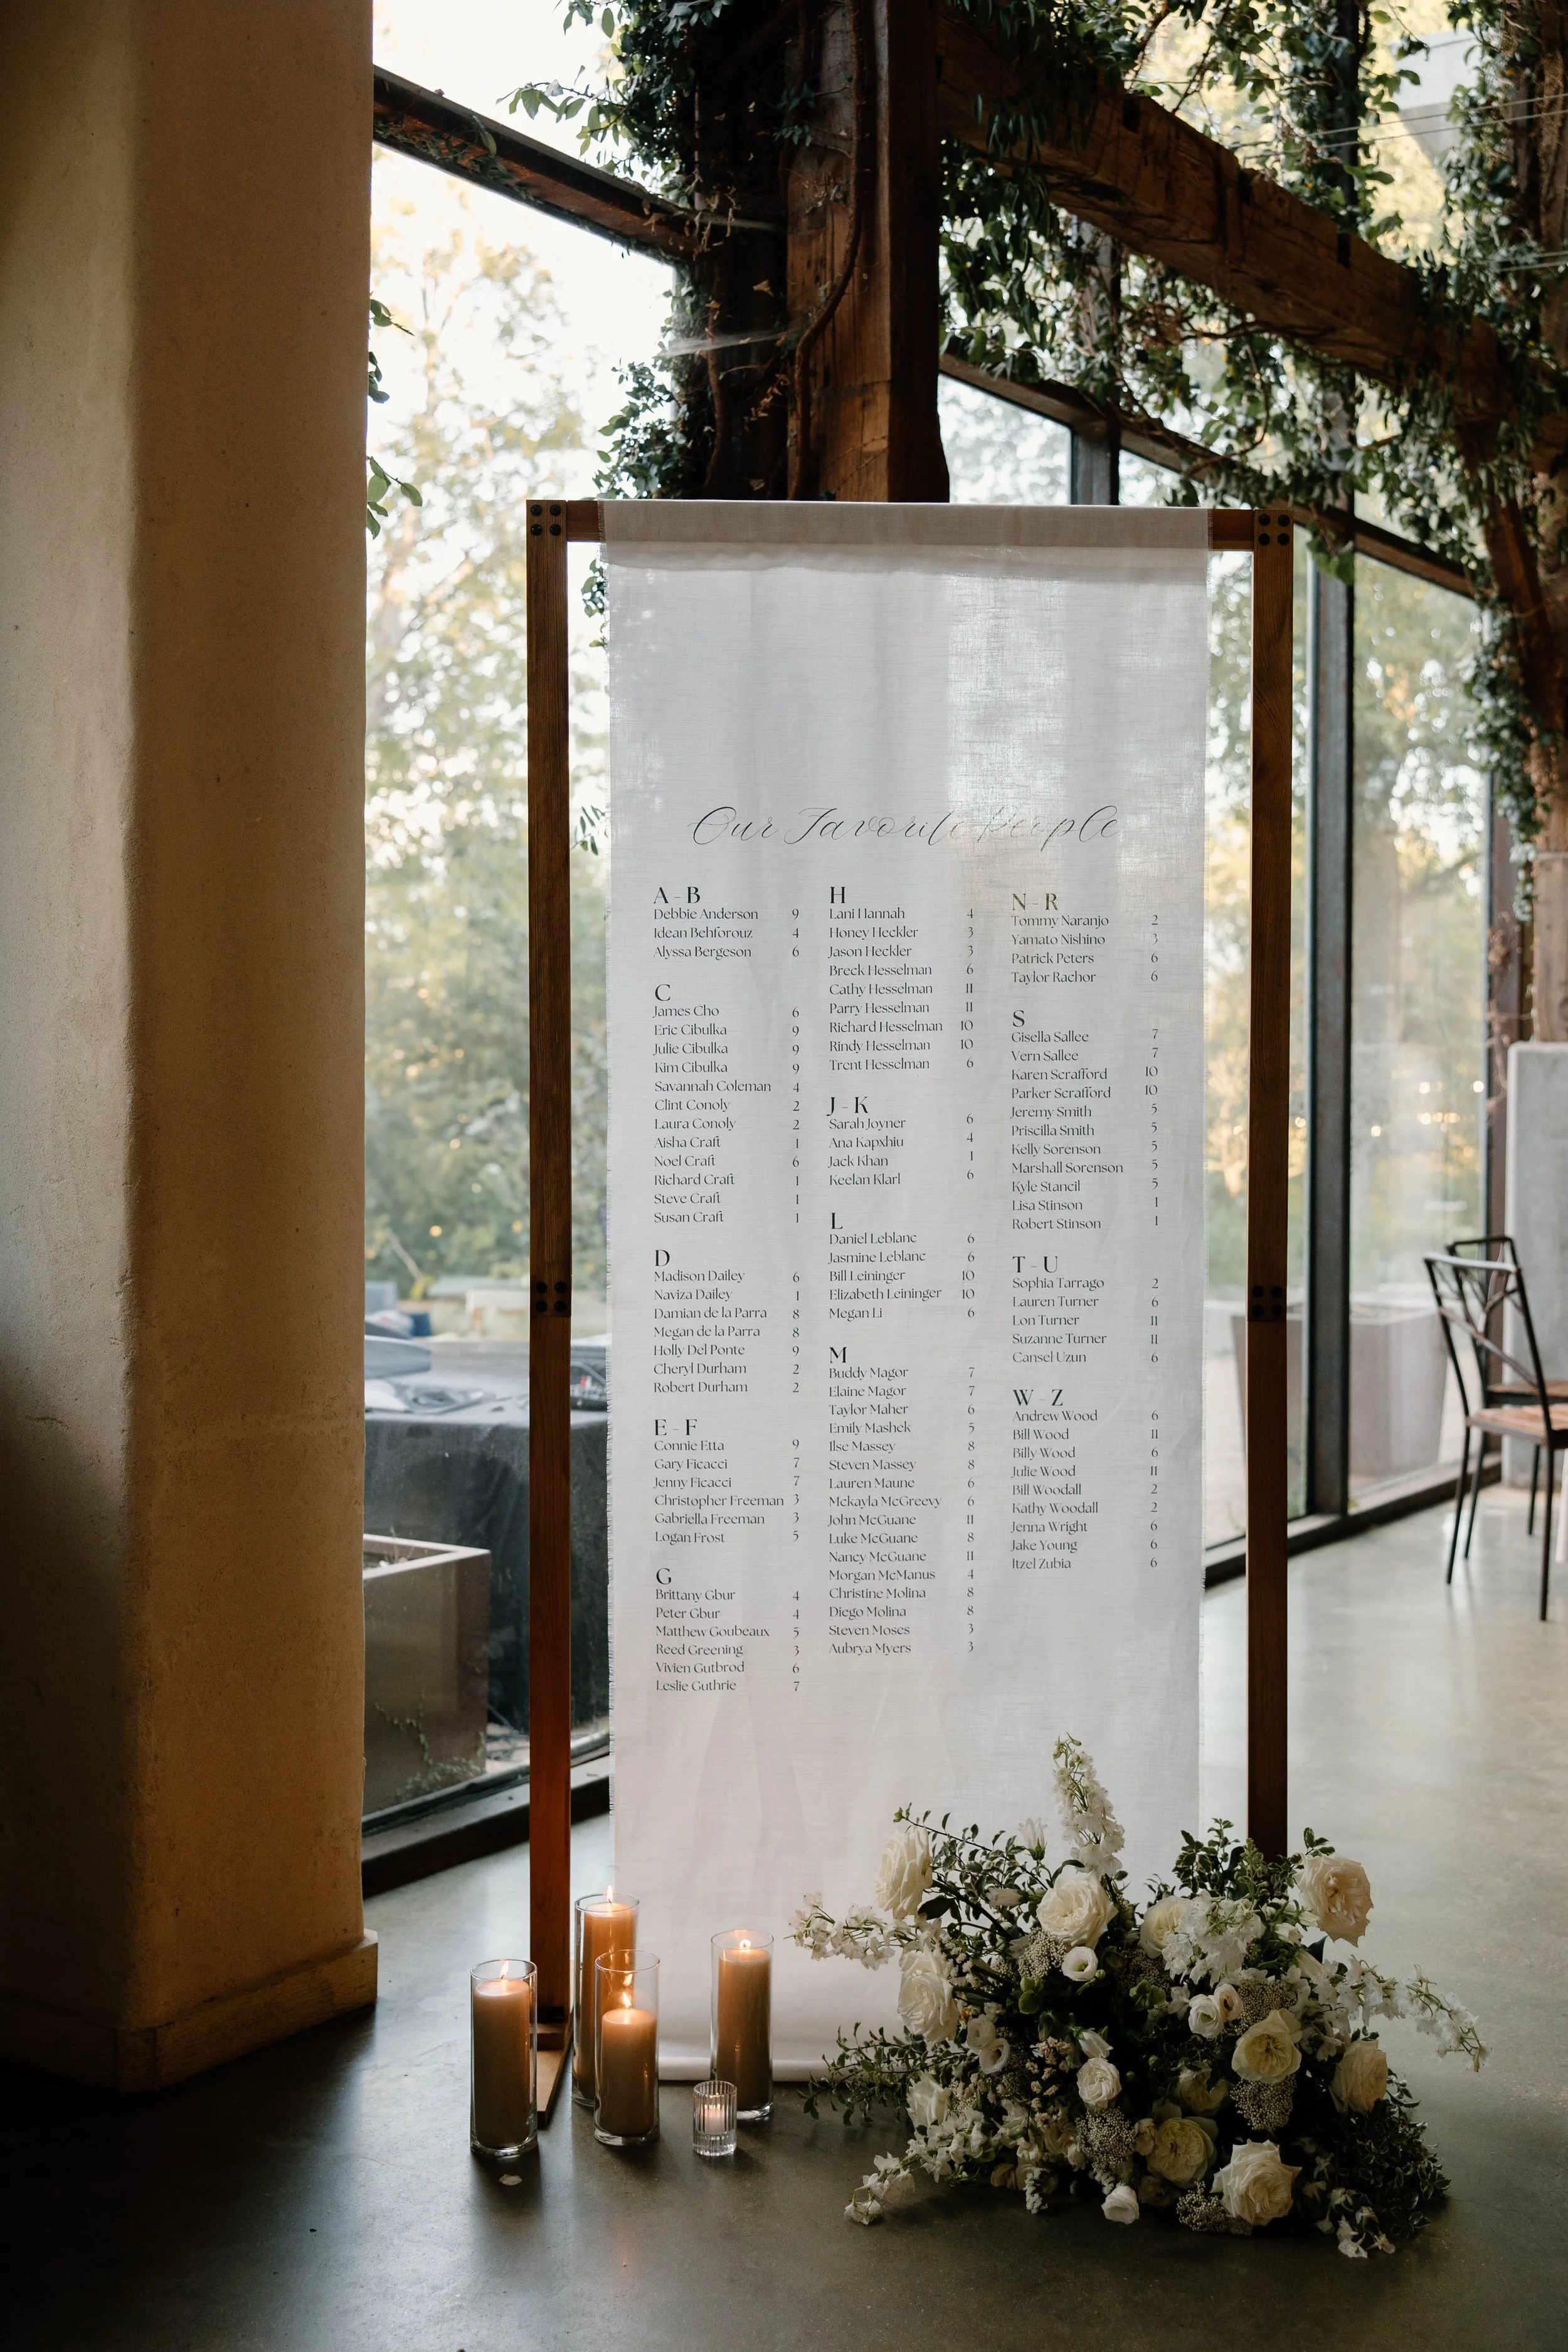 Our Favorite People
A - B
Debbie Anderson 9
Idean Behforouz 4
Alyssa Bergeson 6
C
James Cho 6
Eric Cibulka 9
Julie Cibulka 9
Kim Cibulka 9
Savannah Coleman 4
Clint Conoly 2
Laura Conoly 2
Aisha Craft 1
Noel Craft 6
Richard Craft 1
Steve Craft 1
Susan Craft 1
D
Madison Dailey 6
Naviza Dailey 1
Damian de la Parra 8
Megan de la Parra 8
Holly Del Ponte 9
Cheryl Durham 2
Robert Durham 2
E - F
Connie Etta 9
Gary Ficacci 7
Jenny Ficacci 7
Christopher Freeman 3
Gabriella Freeman 3
Logan Frost 5
G
Brittany Gbur 4
Peter Gbur 4
Matthew Goubeaux 5
Reed Greening 3
Vivien Gutbrod 6
Leslie Guthrie 7
H
Lani Hannah 4
Honey Heckler 3
Jason Heckler 3
Breck Hesselman 6
Cathy Hesselman 11
Parry Hesselman 11
Richard Hesselman 10
Rindy Hesselman 10
Trent Hesselman 6
J - K
Sarah Joyner 6
Ana Kapxhiu 4
Jack Khan 1
Keelan Klarl 6
L
Daniel Leblanc 6
Jasmine Leblanc 6
Bill Leininger 10
Elizabeth Leininger 10
Megan Li 6
M
Buddy Magor 7
Elaine Magor 7
Taylor Maher 6
Emily Mashek 5
Ilse Massey 8
Steven Massey 8
Lauren Maune 6
Mckayla McGreevy 6
John McGuane 11
Luke McGuane 8
Nancy McGuane 11
Morgan McManus 4
Christine Molina 8
Diego Molina 8
Steven Moses 3
Aubrya Myers 3
N - R
Tommy Naranjo 2
Yamato Nishino 3
Patrick Peters 6
Taylor Rachor 6
S
Gisella Sallee 7
Vern Sallee 7
Karen Scrafford 10
Parker Scrafford 10
Jeremy Smith 5
Priscilla Smith 5
Kelly Sorenson 5
Marshall Sorenson 5
Kyle Stancil 5
Lisa Stinson 1
Robert Stinson 1
T - U
Sophia Tarrago 2
Lauren Turner 6
Lon Turner 11
Suzanne Turner 11
Cansel Uzun 6
W - Z
Andrew Wood 6
Bill Wood 11
Billy Wood 6
Julie Wood 11
Bill Woodall 2
Kathy Woodall 2
Jenna Wright 6
Jake Young 6
Itzel Zubia 6